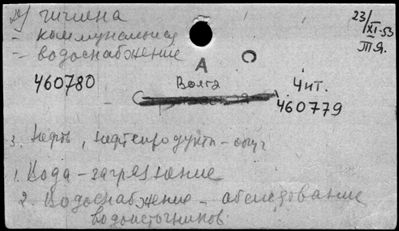 гигиена
23/XI-53
- коммунальная
Т.Я.
- водоснабжение
А
460780
Волга
Чит.
460779
3. Нефть, нефтепродукты -
1. Вода - загрязнение
2. Водоснабжение - обследование
водоисточников.